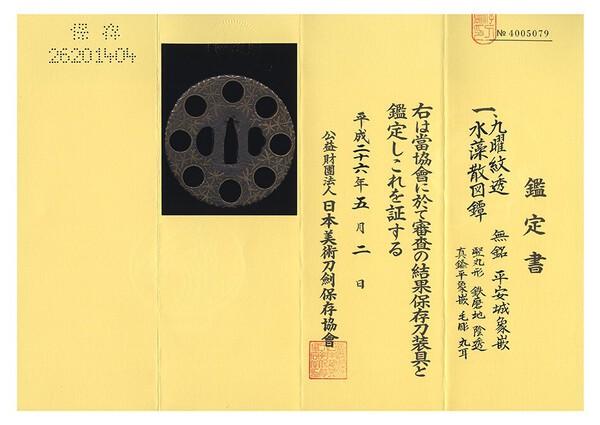 № 4005079
鑑定書
一、九曜紋透
水藻散図鐔
無銘 平安城象嵌
竪丸形 鉄磨地 陰透
真鍮平象嵌 毛彫 丸耳
右は當協會に於て審査の結果保存刀装具と
鑑定しこれを証する
平成二十六年五月二日
公益財團法人 日本美術刀劍保存協會
保存
26201404